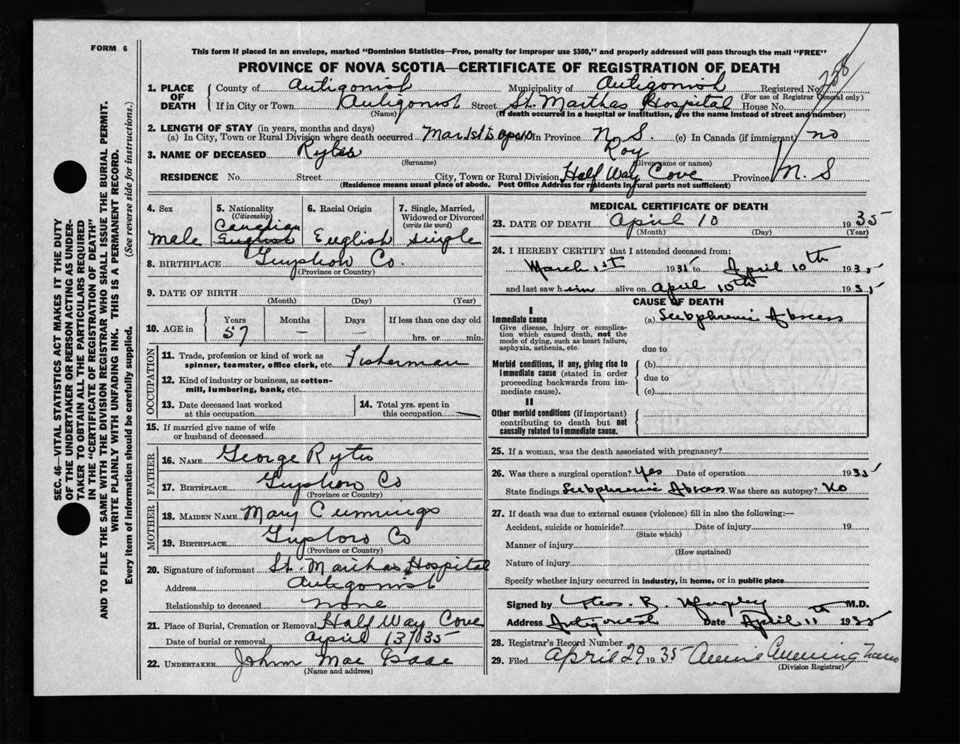 FORM 6
This form if placed in an envelope, marked "Dominion Statistics—Free, penalty for improper use $300," and properly addressed will pass through the mail "FREE"
PROVINCE OF NOVA SCOTIA—CERTIFICATE OF REGISTRATION OF DEATH
208
1. PLACE OF DEATH County of Antigonish Municipality of Antigonish Registered No.
(For use of Registrar General only)
If in City or Town Antigonish Street St. Marthas Hospital House No.
(Name) (If death occurred in a hospital or institution, give the name instead of street and number)
2. LENGTH OF STAY (in years, months and days)
(a) In City, Town or Rural Division where death occurred Mar 1st to Apr 10 In Province N. S. (c) In Canada (if immigrant) no
3. NAME OF DECEASED Rytes Roy
(Surname) (Given name or names)
RESIDENCE No. Street City, Town or Rural Division Half Way Cove Province N. S
(Residence means usual place of abode. Post Office Address for residents in rural parts not sufficient)
4. Sex male
5. Nationality (Citizenship) Canadian English
6. Racial Origin English
7. Single, Married, Widowed or Divorced (write the word) single
8. BIRTHPLACE Guysboro Co.
(Province or Country)
9. DATE OF BIRTH
(Month) (Day) (Year)
10. AGE in Years 57 Months — Days — If less than one day old hrs. or min.
OCCUPATION
11. Trade, profession or kind of work as spinner, teamster, office clerk, etc. Fisherman
12. Kind of industry or business, as cotton-mill, lumbering, bank, etc.
13. Date deceased last worked at this occupation
14. Total yrs. spent in this occupation —
15. If married give name of wife or husband of deceased
FATHER
16. NAME George Rytes
17. BIRTHPLACE Guysboro Co
(Province or Country)
MOTHER
18. MAIDEN NAME Mary Cummings
19. BIRTHPLACE Guysboro Co
(Province or Country)
20. Signature of informant St. Marthas Hospital
Address Antigonish
Relationship to deceased none
21. Place of Burial, Cremation or Removal Half Way Cove
Date of burial or removal April 13/35
22. UNDERTAKER John Mac Isaac
(Name and address)
MEDICAL CERTIFICATE OF DEATH
23. DATE OF DEATH April 10 1935
(Month) (Day) (Year)
24. I HEREBY CERTIFY that I attended deceased from:
March 1st 1935 to April 10th 1935
and last saw him alive on April 10th 1935
CAUSE OF DEATH
I
Immediate cause (a) Subphrenic Abscess
Give disease, injury or complication which caused death, not the mode of dying, such as heart failure, asphyxia, asthenia, etc.
due to
Morbid conditions, if any, giving rise to immediate cause (stated in order proceeding backwards from immediate cause).
(b)
due to
(c)
II
Other morbid conditions (if important) contributing to death but not causally related to immediate cause.
25. If a woman, was the death associated with pregnancy?
26. Was there a surgical operation? Yes Date of operation 1935
State findings Subphrenic Abscess Was there an autopsy? No
27. If death was due to external causes (violence) fill in also the following:—
Accident, suicide or homicide? Date of injury 19
(State which)
Manner of injury
(How sustained)
Nature of injury
Specify whether injury occurred in industry, in home, or in public place
Signed by B. Murphy M.D.
Address Antigonish Date April 11th 1935
28. Registrar's Record Number
29. Filed April 29 1935 Annie Cunningham
(Division Registrar)
SEC. 46—VITAL STATISTICS ACT MAKES IT THE DUTY
OF THE UNDERTAKER OR PERSON ACTING AS UNDER-
TAKER TO OBTAIN ALL THE PARTICULARS REQUIRED
IN THE "CERTIFICATE OF REGISTRATION OF DEATH"
AND TO FILE THE SAME WITH THE DIVISION REGISTRAR WHO SHALL ISSUE THE BURIAL PERMIT.
WRITE PLAINLY WITH UNFADING INK. THIS IS A PERMANENT RECORD.
Every item of information should be carefully supplied. (See reverse side for instructions.)